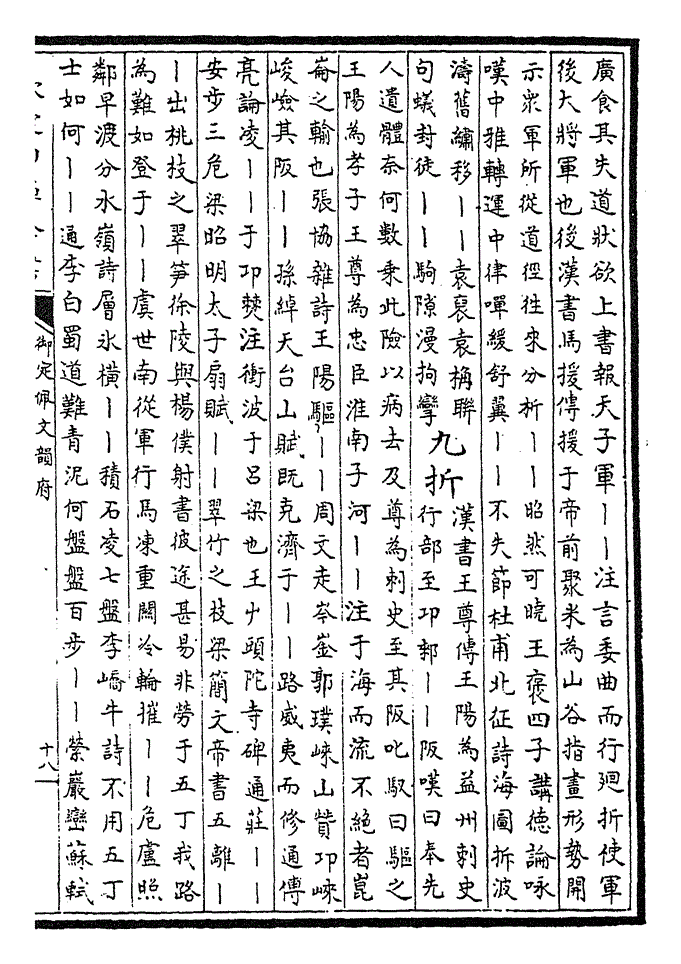 廣食其失道狀欲上書報天子軍丨丨注言委曲而行廻折使軍
後大將軍也後漢書馬援傳援于帝前聚米為山谷指畫形勢開
示衆軍所從道徑往來分析丨丨昭然可曉王褒四子講德論咏
嘆中雅轉運中律嘽緩舒翼丨丨不失節杜甫北征詩海圖拆波
濤舊繡移丨丨袁裒袁桷聯
句蟻封徒丨丨駒隙漫拘攣
九折
漢書王尊傳王陽為益州刺史
行部至卭郲丨丨阪嘆曰奉先
人遺體奈何數乗此險以病去及尊為刺史至其阪叱馭曰驅之
王陽為孝子王尊為忠臣淮南子河丨丨注于海而流不絶者崑
崙之輸也張協雜詩王陽驅丨丨周文走岑崟郭璞崍山贊卭崍
峻嶮其阪丨丨孫綽天台山賦既克濟于丨丨路威夷而修通傅
亮論凌丨丨于卭僰注衝波于呂梁也王屮頭陀寺碑通莊丨丨
安步三危梁昭明太子扇賦丨丨翠竹之枝梁簡文帝書五離丨
丨出桃枝之翠笋徐陵與楊僕射書彼途甚易非勞于五丁我路
為難如登于丨丨虞世南從軍行馬凍重關冷輪摧丨丨危盧照
鄰早渡分水嶺詩層氷横丨丨積石凌七盤李嶠牛詩不用五丁
士如何丨丨通李白蜀道難青泥何盤盤百步丨丨縈巖巒蘇軾
御定佩文韻府
十八